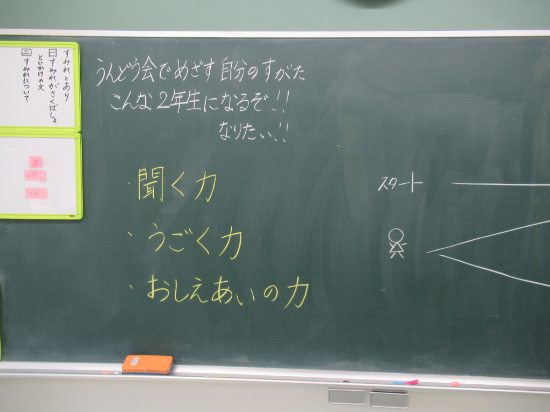 うんどう会でめざす自分のすがた
こんな2年生になるぞ!!
なりたい!!
・聞く力
・うごく力
・おしえあいの力
スタート
すみれとあり
一 すみれがさくばしょ
といかけの文
二 すみれについて